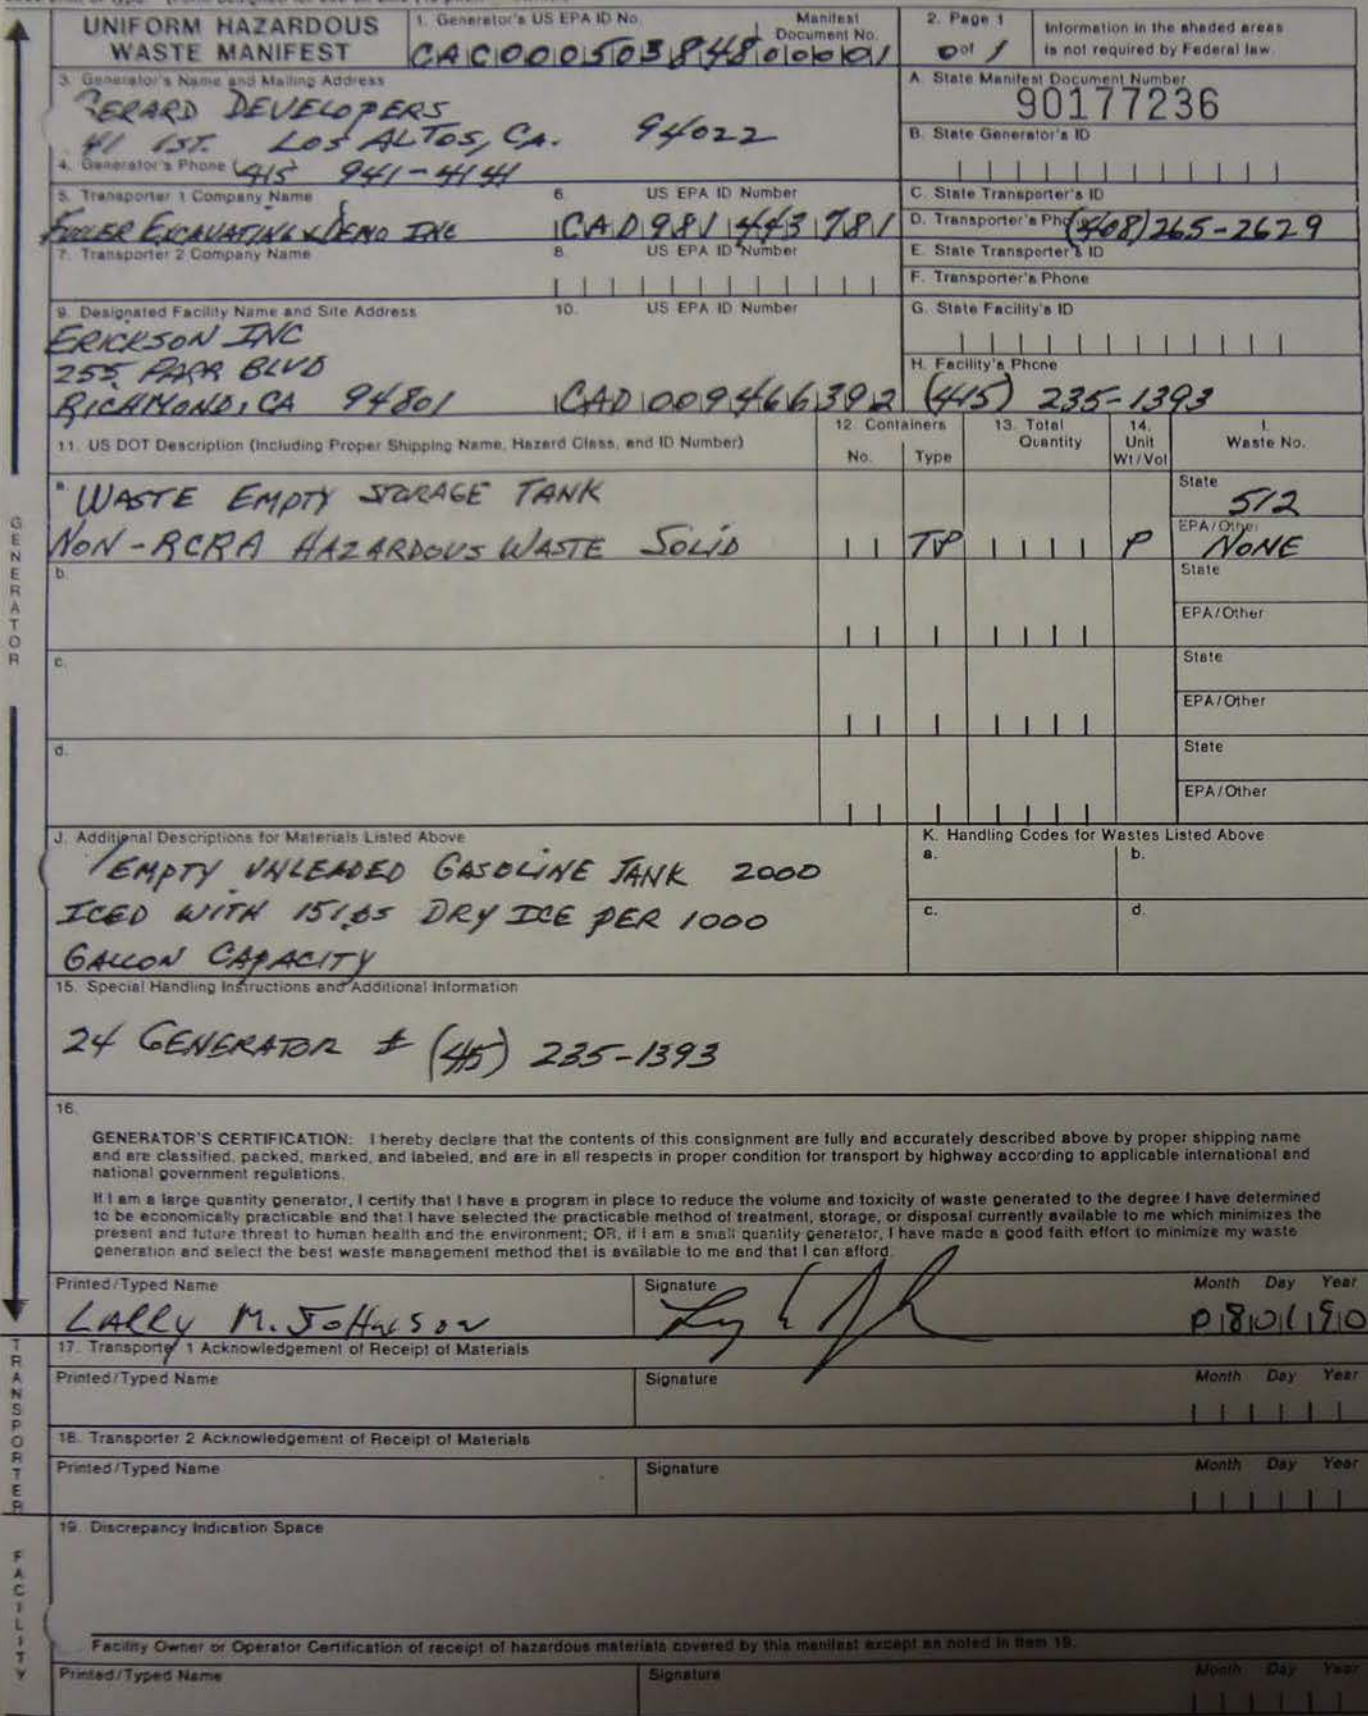 UNIFORM HAZARDOUS WASTE MANIFEST
1. Generator's US EPA ID No.
Manifest Document No.
CAC000503848 00001
2. Page 1
of 1
Information in the shaded areas is not required by Federal law.
3. Generator's Name and Mailing Address
GERARD DEVELOPERS
41 1ST. LOS ALTOS, CA. 94022
4. Generator's Phone (415) 941-4141
A. State Manifest Document Number
90177236
B. State Generator's ID
5. Transporter 1 Company Name
6. US EPA ID Number
EXCAVATING & DEMO INC
CAD981443781
C. State Transporter's ID
D. Transporter's Phone (408) 265-2629
7. Transporter 2 Company Name
8. US EPA ID Number
E. State Transporter's ID
F. Transporter's Phone
9. Designated Facility Name and Site Address
10. US EPA ID Number
ERICKSON INC
255 PARR BLVD
RICHMOND, CA 94801
CAD009466392
G. State Facility's ID
H. Facility's Phone
(415) 235-1393
11. US DOT Description (Including Proper Shipping Name, Hazard Class, and ID Number)
12. Containers
No.
Type
13. Total Quantity
14. Unit Wt/Vol
I. Waste No.
a. WASTE EMPTY STORAGE TANK
NON-RCRA HAZARDOUS WASTE SOLID
TP
P
State
512
EPA/Other
NONE
b.
State
EPA/Other
c.
State
EPA/Other
d.
State
EPA/Other
J. Additional Descriptions for Materials Listed Above
EMPTY UNLEADED GASOLINE TANK 2000
ICED WITH 15 LBS DRY ICE PER 1000
GALLON CAPACITY
K. Handling Codes for Wastes Listed Above
a.
b.
c.
d.
15. Special Handling Instructions and Additional Information
24 GENERATOR # (415) 235-1393
16.
GENERATOR'S CERTIFICATION: I hereby declare that the contents of this consignment are fully and accurately described above by proper shipping name
and are classified, packed, marked, and labeled, and are in all respects in proper condition for transport by highway according to applicable international and
national government regulations.
If I am a large quantity generator, I certify that I have a program in place to reduce the volume and toxicity of waste generated to the degree I have determined
to be economically practicable and that I have selected the practicable method of treatment, storage, or disposal currently available to me which minimizes the
present and future threat to human health and the environment; OR, if I am a small quantity generator, I have made a good faith effort to minimize my waste
generation and select the best waste management method that is available to me and that I can afford.
Printed/Typed Name
Signature
Month Day Year
LARRY M. JOHNSON
080190
17. Transporter 1 Acknowledgement of Receipt of Materials
Printed/Typed Name
Signature
Month Day Year
18. Transporter 2 Acknowledgement of Receipt of Materials
Printed/Typed Name
Signature
Month Day Year
19. Discrepancy Indication Space
Facility Owner or Operator Certification of receipt of hazardous materials covered by this manifest except as noted in Item 19.
Printed/Typed Name
Signature
Month Day Year
GENERATOR
TRANSPORTER
FACILITY